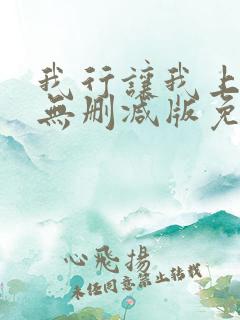 我行讓我上
無刪減版免
心飛揚
未经同意禁止转载